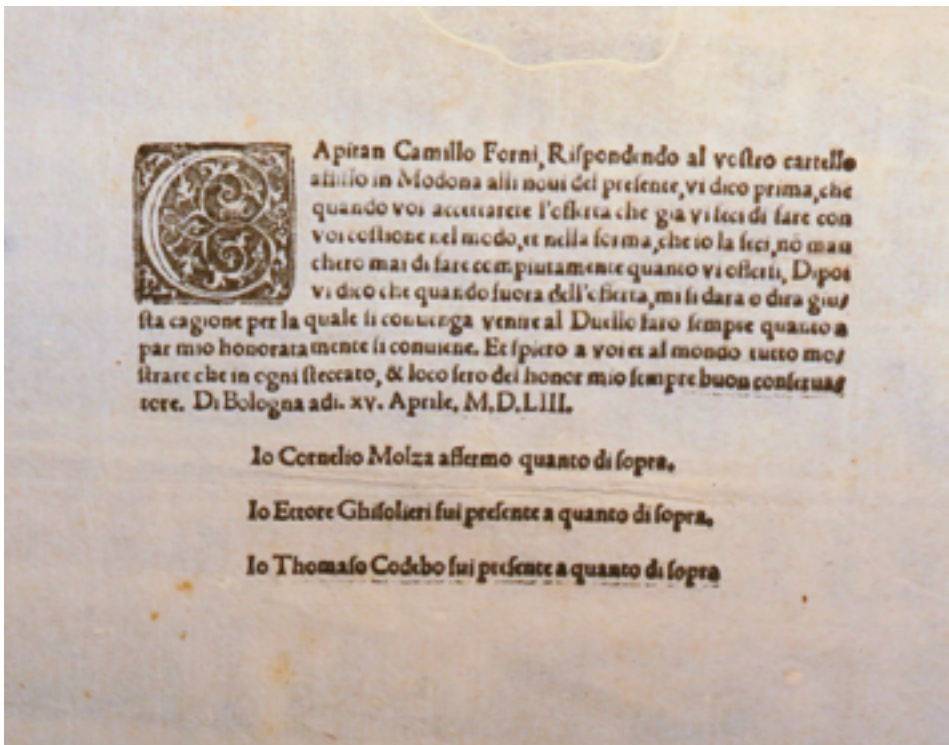 CApitan Camillo Forni, Rispondendo al vostro cartello
affisso in Modona alli noui del presente, vi dico prima, che
quando voi accettarete l'offerta che gia vi feci di fare con
voi costione nel modo, et nella forma, che io la feci, nõ man
chero mai di fare compiutamente quanto vi offersi, Dipoi
vi dico che quando fuora dell'offerta, mi si dara o dira giu/
sta cagione per la quale si conuenga venire al Duello faro sempre quanto a
par mio honoratamente si conuiene. Et spiero a voi et al mondo tutto mo/
strare che in ogni steccato, & loco sero del honor mio sempre buon conserua/
tore. Di Bologna adi. xv. Aprile. M.D.LIII.
Io Cornelio Molza affermo quanto di sopra.
Io Ettore Ghisolieri fui presente a quanto di sopra.
Io Thomaso Codebo fui presente a quanto di sopra